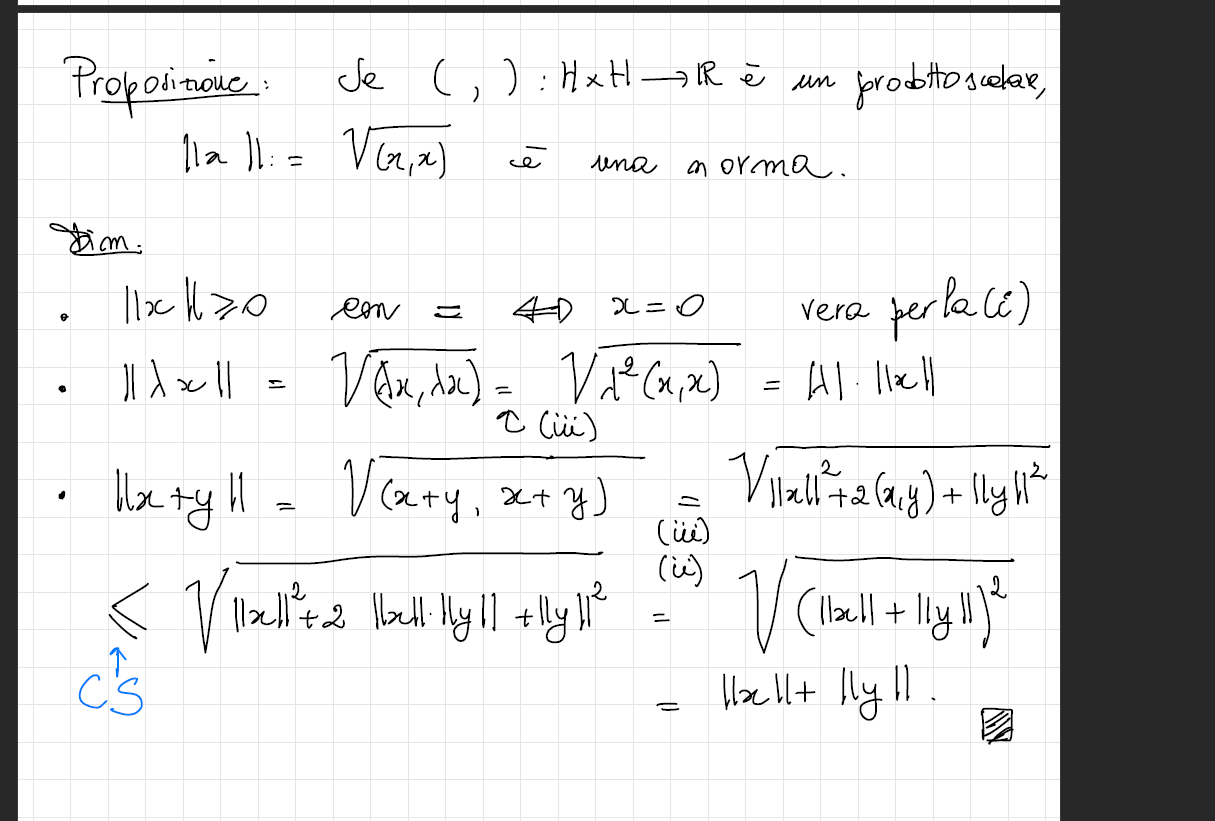 Proposizione: Se ( , ) : H×H → ℝ è un prodotto scalare,
||x|| := √(x,x) è una norma.
Dim.
• ||x|| ⩾ 0 con = ⇔ x = 0 vera per la (i)
• ||λx|| = √(λx, λx) = √λ²(x,x) = |λ|·||x||
↑ (iii)
• ||x+y|| = √(x+y, x+y) = √||x||²+2(x,y)+||y||²
(iii)
(ii)
⩽ √||x||²+2 ||x||·||y||+||y||² = √(||x||+||y||)²
↑
CS
= ||x||+||y||.